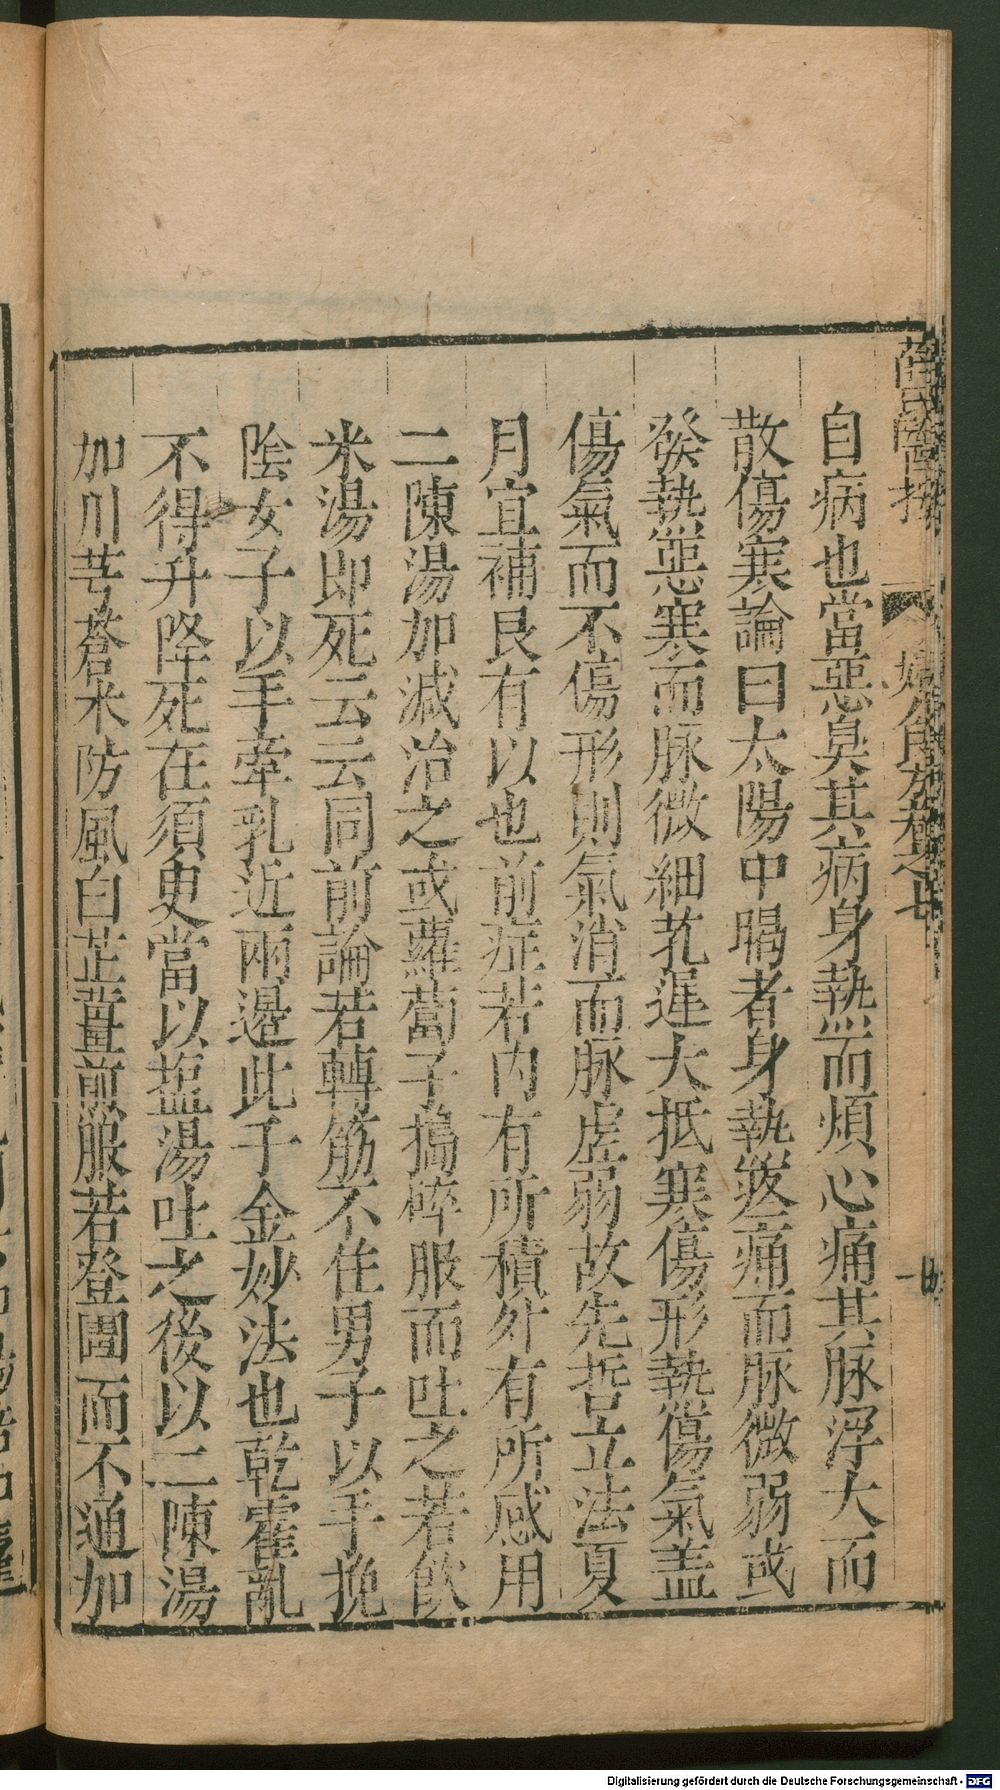 自病也當惡臭其病身熱而煩心痛其脉浮大而
散傷寒論曰太陽中暍者身熱疼痛而脉微弱或
發熱惡寒而脉微細芤遲大抵寒傷形熱傷氣盖
傷氣而不傷形則氣消而脉虚弱故先哲立法夏
月宜補良有以也前症若内有所積外有所感用
二陳湯加减治之或蘿蔔子搗碎服而吐之若飲
米湯即死云云同前論若轉筋不住男子以手挽
陰女子以手牽乳近兩邊此千金妙法也乾霍亂
不得升降死在須臾當以塩湯吐之後以二陳湯
加川芎蒼术防風白芷薑煎服若登圊而不通加
Digitalisierung gefördert durch die Deutsche Forschungsgemeinschaft - DFG